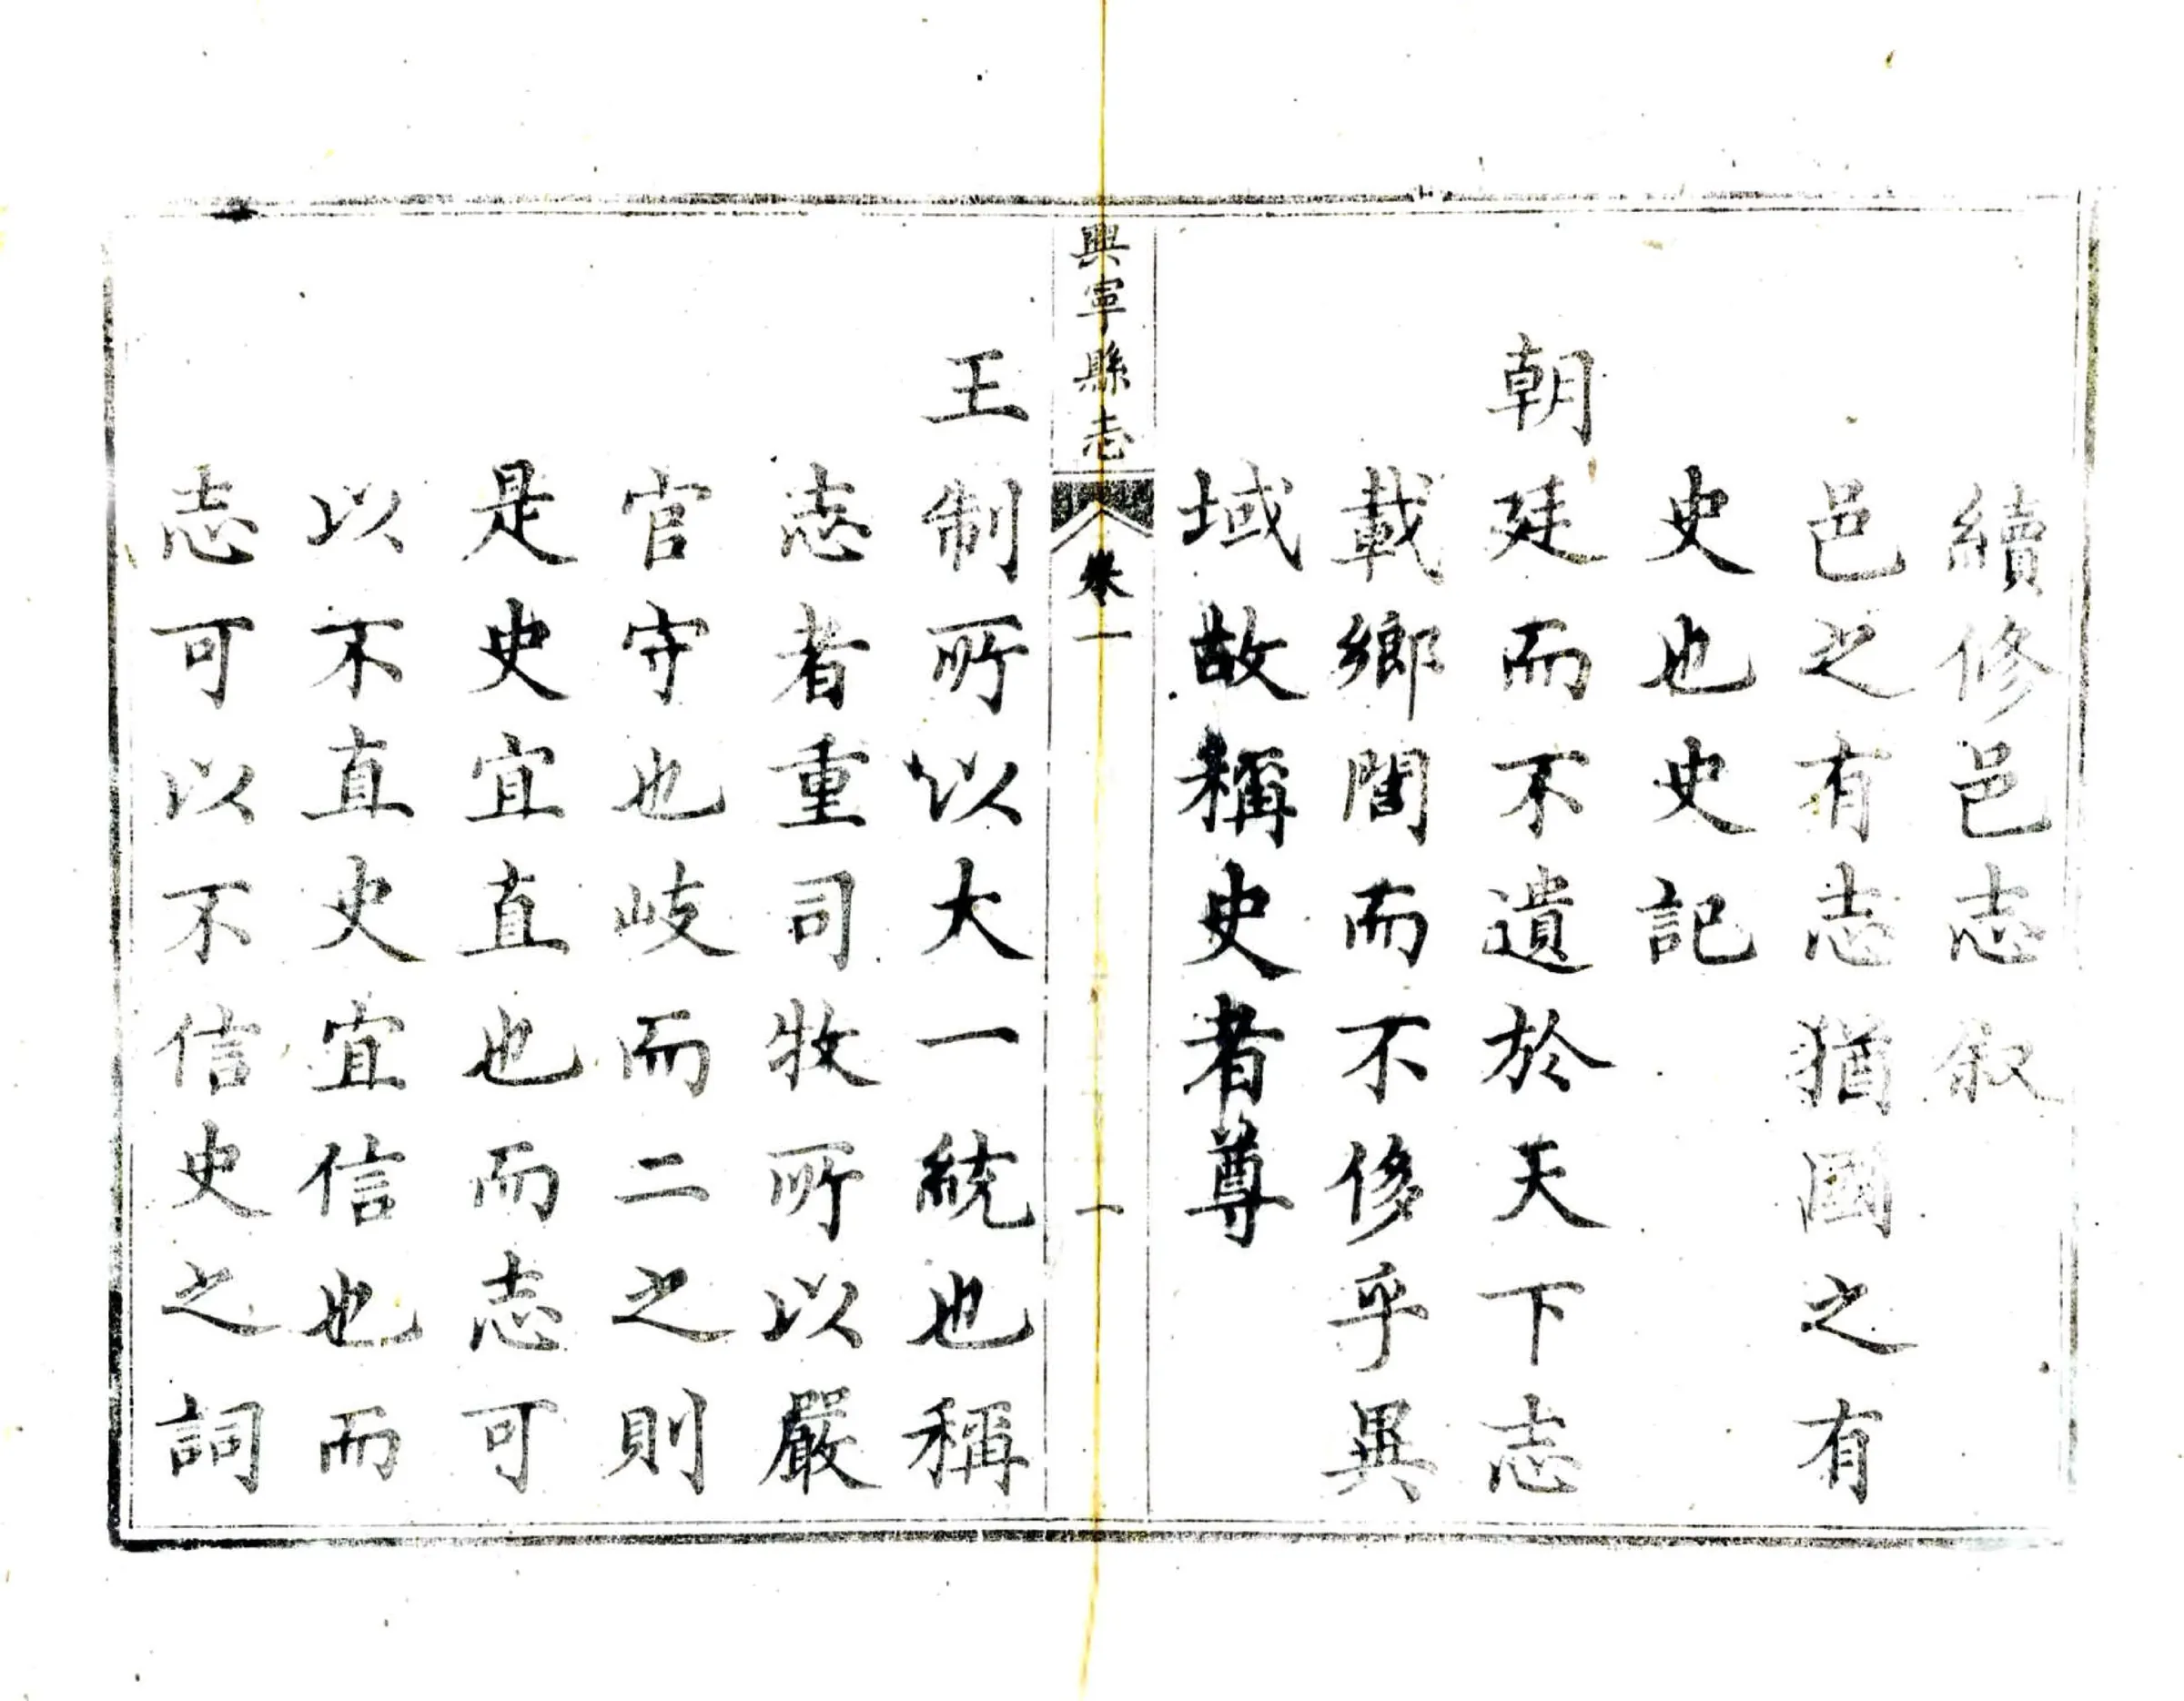 續修邑志叙
邑之有志猶國之有
史也史記
朝廷而不遺於天下志
載鄉閭而不侈乎異
域故稱史者尊
興寧縣志 卷一 一
王制所以大一統也稱
志者重司牧所以嚴
官守也岐而二之則
是史宜直也而志可
以不直史宜信也而
志可以不信史之詞